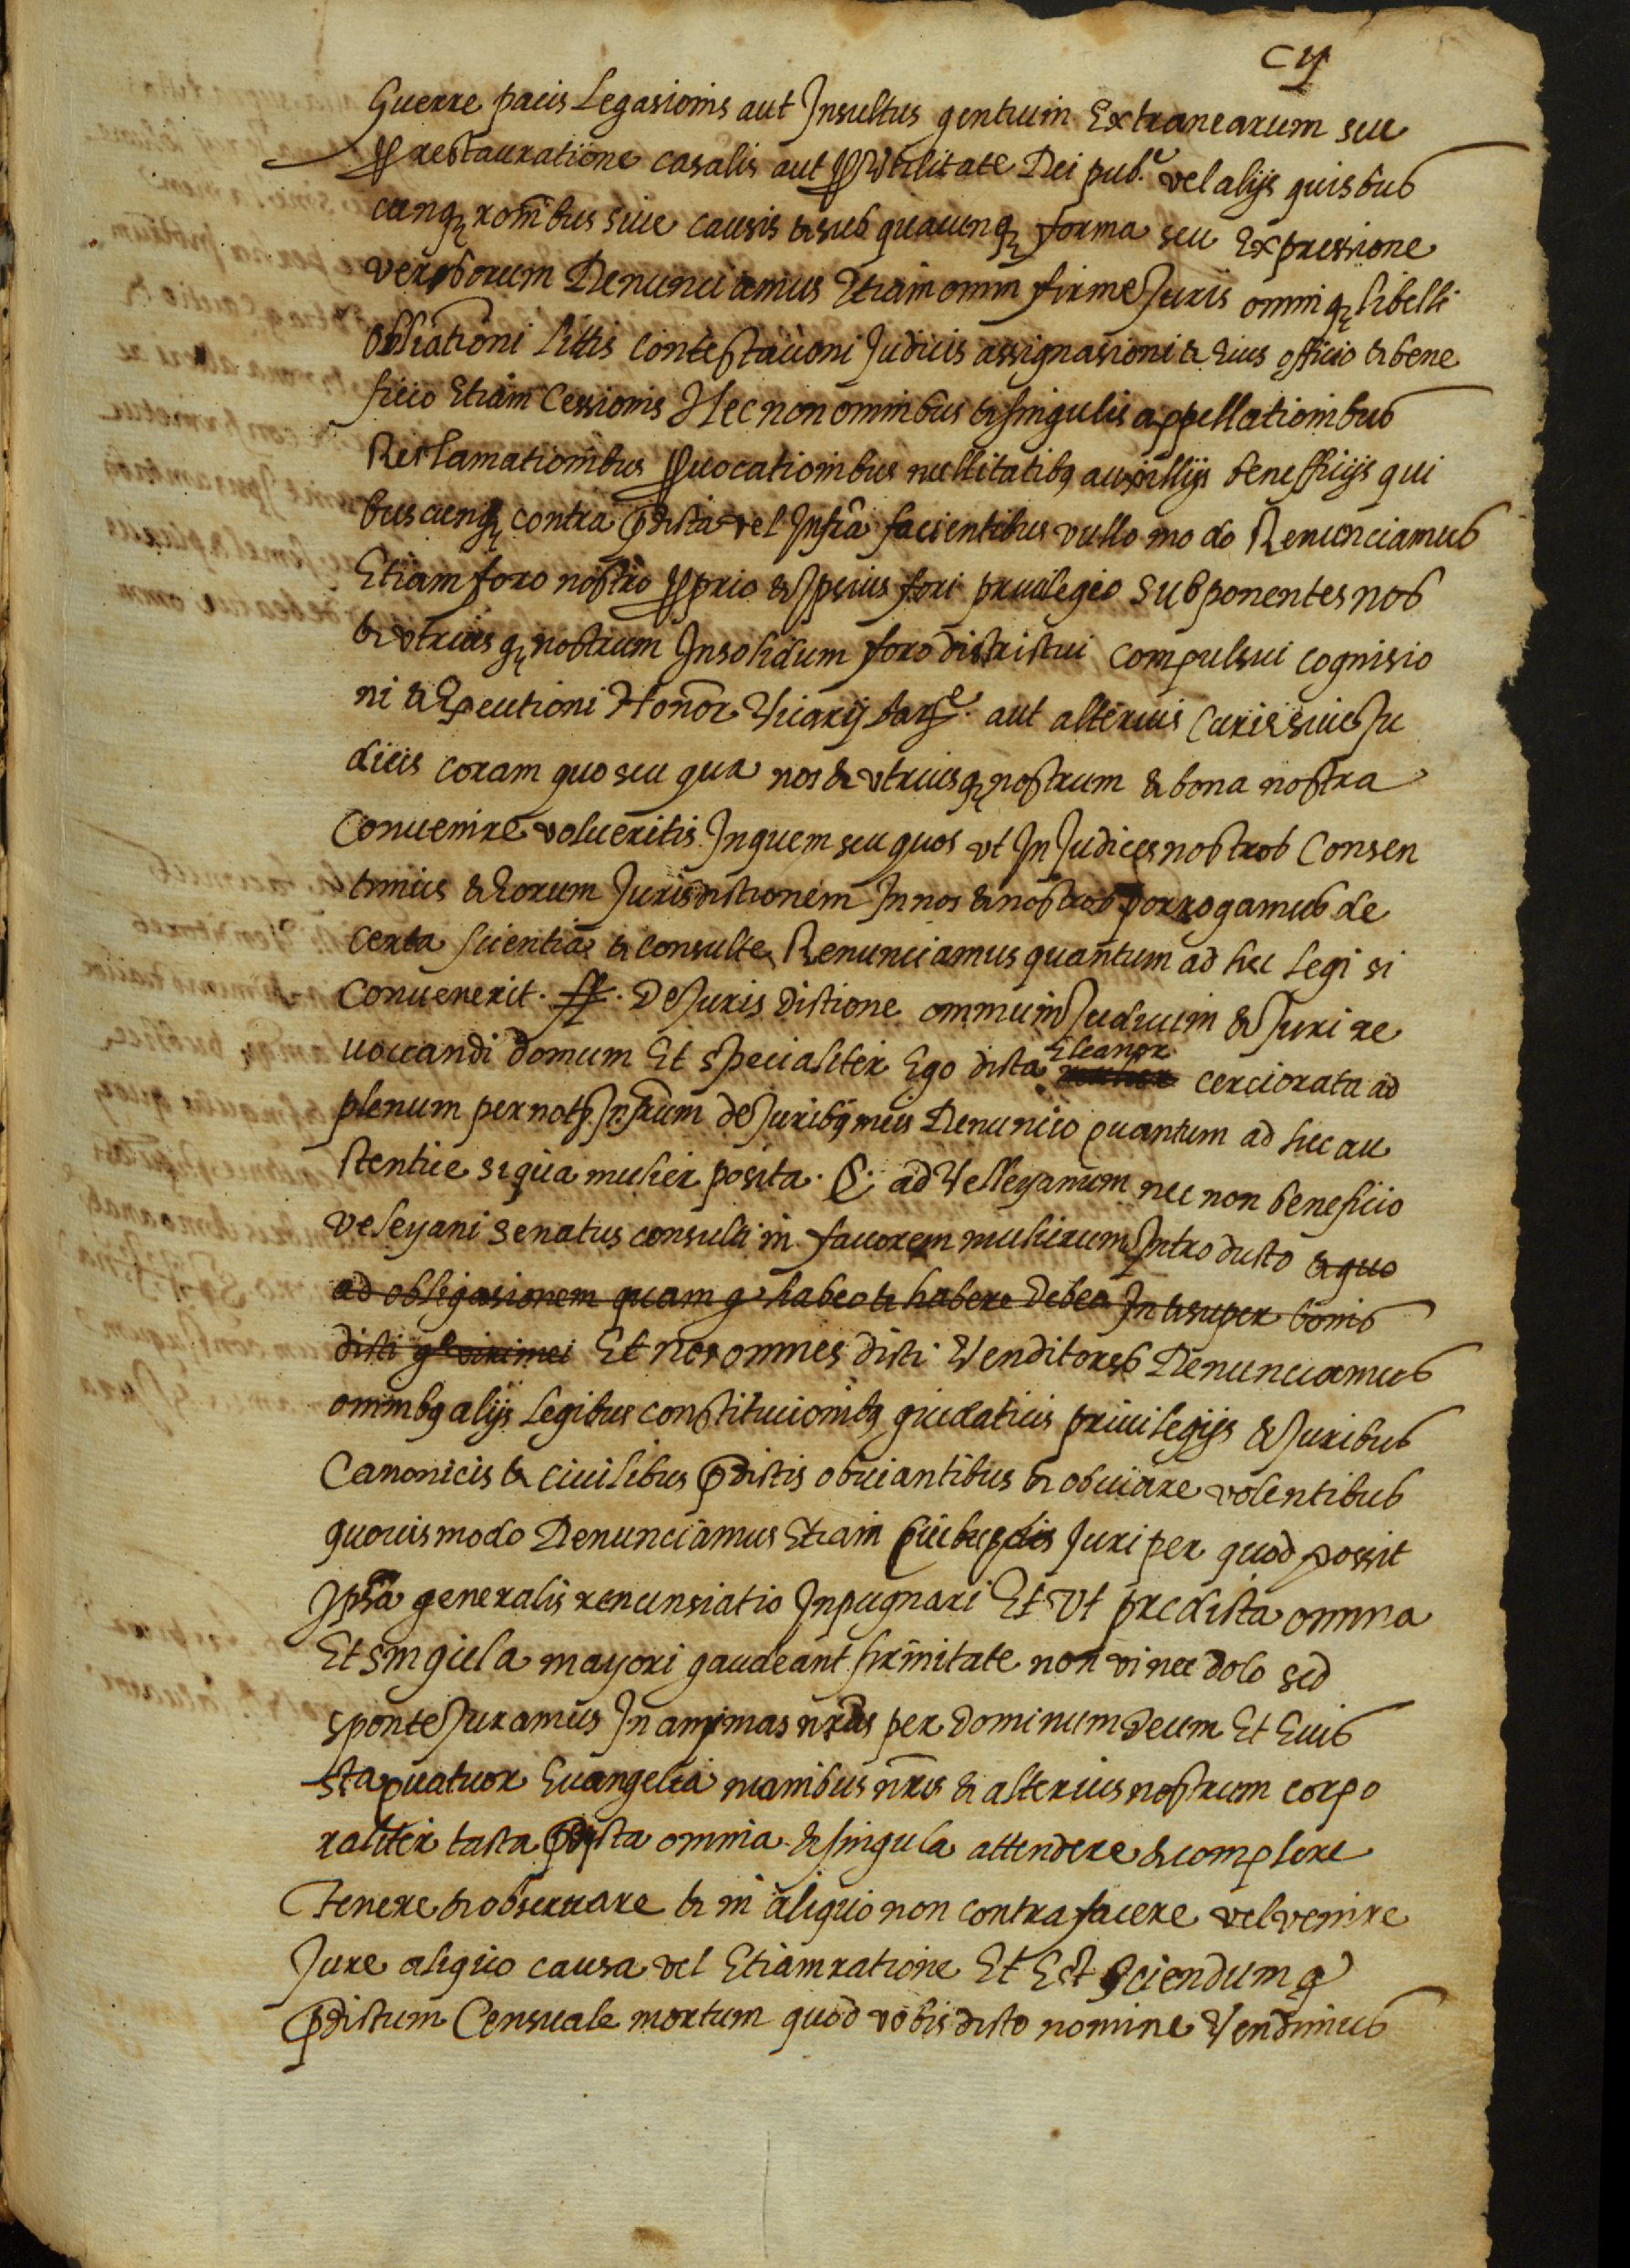 cij
Guerre pacis Legasionis aut Insultus gentium Extranearum seu
ꝓ restauratione casalis aut ꝓ Vtilitate Rei pub.ᵉ vel alijs quisbus
cunqꝫ rom̄bus siue causis & sub quacunqꝫ forma seu Expressione
verborum Renunciamus Etiam omni firme Juris omniqꝫ libelli
obblationi littis contestacioni Judicis assignasioni & Eius officio & bene
ficio Etiam Cessionis Necnon omnibus & singulis appellationibus
Reclamationibus ꝓuocationibus nullitatibꝫ auxillijs beneffitijs qui
buscunqꝫ contra p̄dicta vel Infr̄a facientibus vullo modo Renunciamus
Etiam foro nostro ꝓprio & Ipsius fori priuilegio Subponentes nos
& vtriusqꝫ nostrum Insolidum foro districtui compulsui cognisio
ni & Executioni Honor̄ Vicarij bar̄ᵉ. aut alterius Curie siue Ju
dicis coram quo seu qua nos & vtriusqꝫ nostrum & bona nostra
Conuenire volueritis Inquem seu quos vt In Judices nostros Consen
timus & Eorum Jurisdictionem In nos & nostros porrogamus de
certa scientia & consulte Renunciamus quantum ad hec Legi si
conuenerit. ff. De Jurisdictione omnium Judicum & Juri re
uoccandi domum Et specialiter Ego dicta Eleanor cerciorata ad
plenum per not Infrum de Juribꝫ meis Renuncio quantum ad hec au
stentice siqua mulier posita. C. ad Velleyanum nec non beneficio
veleyani senatus consulti in fauorem mulierum Introducto & quo
ad obligasionem quam q habeo & habere Debeo In & super bonis
dicti qᵒ viri mei Et nos omnes dicti Venditores Renunciamus
omnibꝫ alijs Legibus constitucionibꝫ guidaticis priuilegijs & Juribus
Canonicis & ciuilibus p̄dictis obuiantibus & obuiare volentibus
quouismodo Renunciamus Etiam Juri per quod possit
Ipsa generalis renunsiatio Inpugnari Et Vt predicta omnia
Et singula mayori gaudeant firmitate non vi nec dolo sed
sponte Juramus In animas nr̄as per Dominum Deum Et Eius
sta quatuor Euangelia manibus nr̄is & alterius nostrum corpo
raliter tacta p̄dicta omnia & singula attendere & complere
Tenere & obseruare & in aliquo non contrafacere vel venire
Jure aliquo causa vel Etiam ratione Et Est sciendum q̄
p̄dictum Censuale mortum quod vobis dicto nomine Vendimus